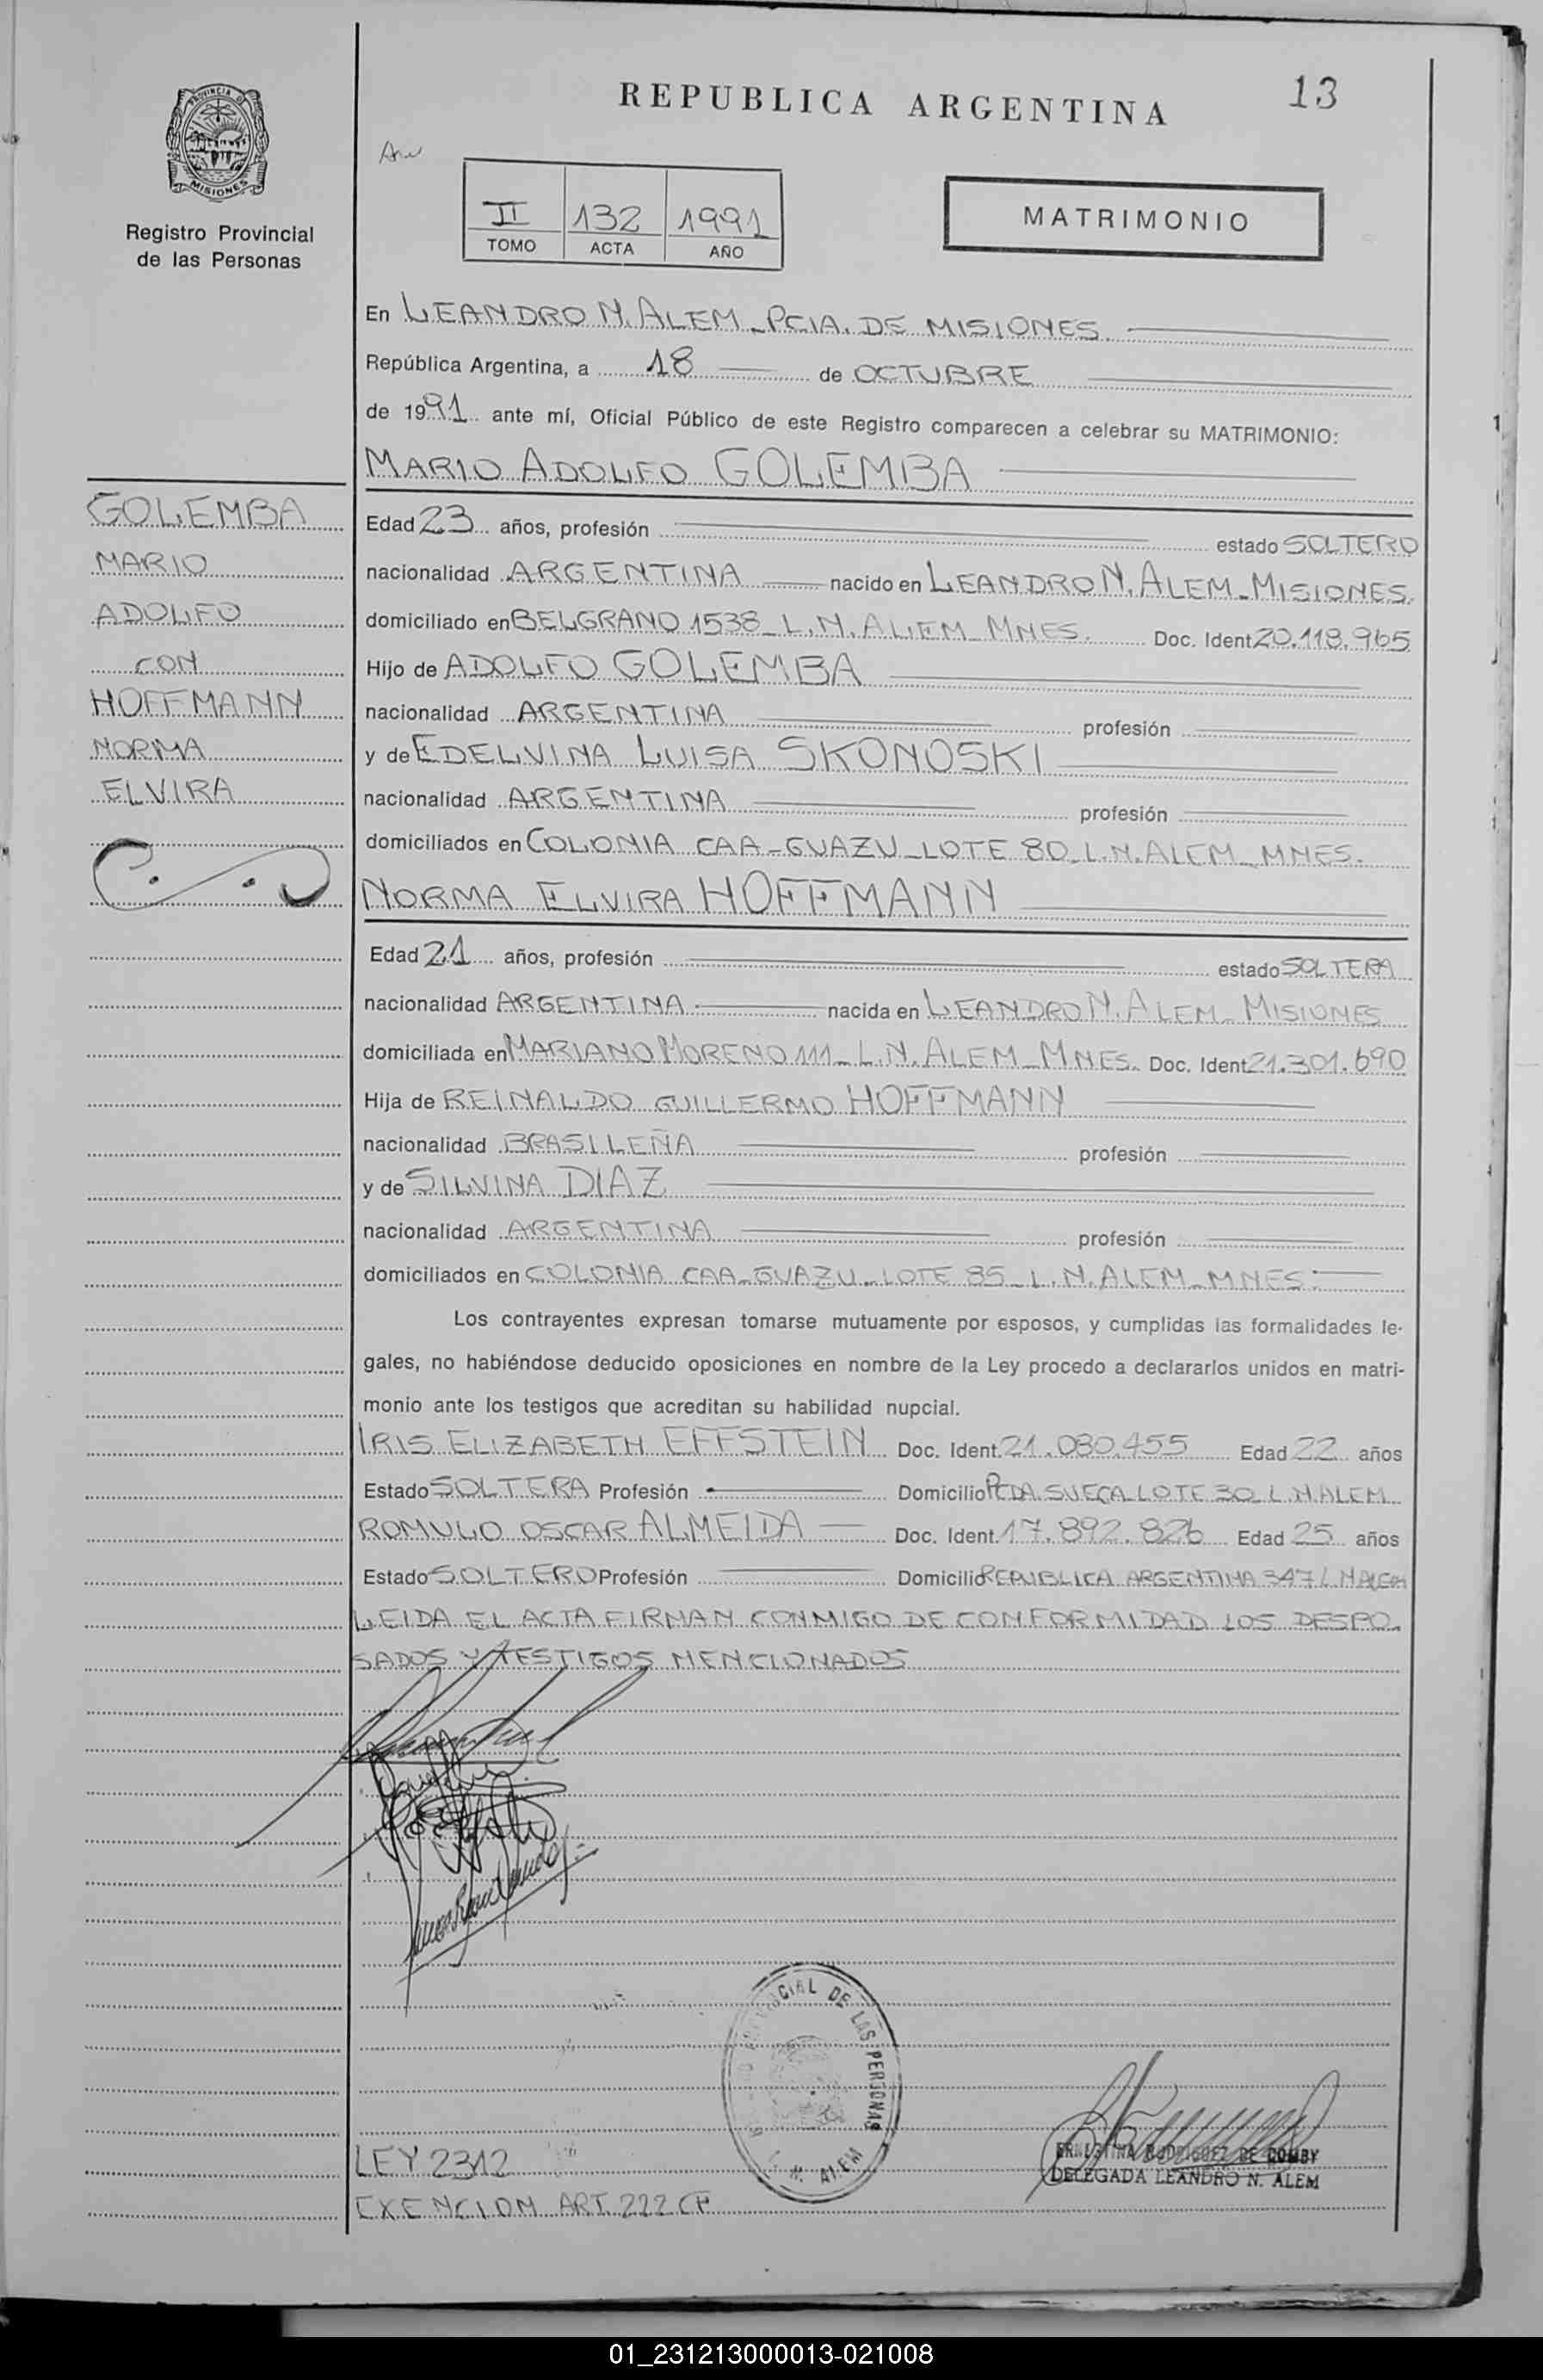 13
REPUBLICA ARGENTINA
PROVINCIA DE
MISIONES
Registro Provincial
de las Personas
II 132 1991
TOMO ACTA AÑO
MATRIMONIO
En LEANDRO N. ALEM_PCIA. DE MISIONES
República Argentina, a 18 de OCTUBRE
de 1991 ante mí, Oficial Público de este Registro comparecen a celebrar su MATRIMONIO:
MARIO ADOLFO GOLEMBA
GOLEMBA
MARIO
ADOLFO
CON
HOFFMANN
NORMA
ELVIRA
Edad 23 años, profesión estado SOLTERO
nacionalidad ARGENTINA nacido en LEANDRO N. ALEM_MISIONES.
domiciliado en BELGRANO 1538_L.N.ALEM_MNES. Doc. Ident 20.118.965
Hijo de ADOLFO GOLEMBA
nacionalidad ARGENTINA profesión
y de EDELVINA LUISA SKONOSKI
nacionalidad ARGENTINA profesión
domiciliados en COLONIA CAA-GUAZU_LOTE 80_L.N.ALEM_MNES.
NORMA ELVIRA HOFFMANN
Edad 21 años, profesión estado SOLTERA
nacionalidad ARGENTINA nacida en LEANDRO N. ALEM_MISIONES
domiciliada en MARIANO MORENO 111_L.N.ALEM_MNES. Doc. Ident 21.301.690
Hija de REINALDO GUILLERMO HOFFMANN
nacionalidad BRASILEÑA profesión
y de SILVINA DIAZ
nacionalidad ARGENTINA profesión
domiciliados en COLONIA CAA-GUAZU_LOTE 85_L.N.ALEM_MNES.
Los contrayentes expresan tomarse mutuamente por esposos, y cumplidas las formalidades le-
gales, no habiéndose deducido oposiciones en nombre de la Ley procedo a declararlos unidos en matri-
monio ante los testigos que acreditan su habilidad nupcial.
IRIS ELIZABETH EFFSTEIN Doc. Ident. 21.080.455 Edad 22 años
Estado SOLTERA Profesión Domicilio PCDA. SUECA LOTE 30 L.N.ALEM
ROMULO OSCAR ALMEIDA Doc. Ident. 17.892.826 Edad 25 años
Estado SOLTERO Profesión Domicilio REPUBLICA ARGENTINA 347 L.N.ALEM
LEIDA EL ACTA FIRMAN CONMIGO DE CONFORMIDAD LOS DESPO-
SADOS Y TESTIGOS MENCIONADOS
DE LAS PERSONAS
N. ALEM
ERNESTINA RODRIGUEZ DE GOMBY
DELEGADA LEANDRO N. ALEM
LEY 2312
EXENCION ART. 222 CF
01_231213000013-021008